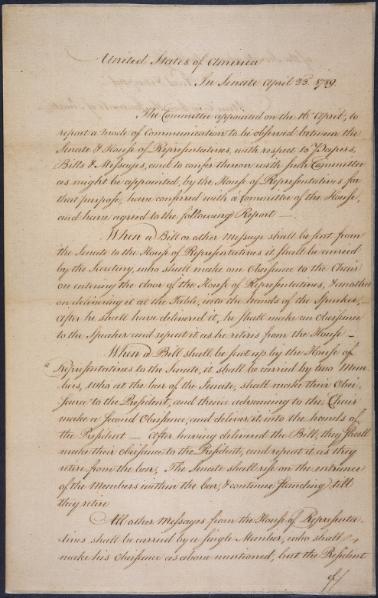 United States of America
In Senate April 23. 1789.
The Committee appointed on the 16th April, to
report a mode of Communication to be observed between the
Senate & House of Representatives, with respect to Papers,
Bills & Messages, and to confer thereon with such Committee
as might be appointed, by the House of Representatives for
that purpose, have conferred with a Committee of the House,
and have agreed to the following Report —
When a Bill or other Message shall be sent from
the Senate to the House of Representatives it shall be carried
by the Secretary, who shall make one Obeisance to the Chair
on entering the door of the House of Representatives, & another
on delivering it at the Table, into the hands of the Speaker,
After he shall have delivered it, he shall make an Obeisance
to the Speaker and repeat it as he retires from the House —
When a Bill shall be sent up by the House of
Representatives to the Senate, it shall be carried by two Mem-
bers, who at the bar of the Senate, shall make their Obei-
sance to the President, and thence advancing to the Chair
make a second Obeisance, and deliver it into the hands of
the President — After having delivered the Bill, they shall
make their Obeisance to the President, and repeat it as they
retire from the bar; The Senate shall rise on the entrance
of the Members within the bar, & continue standing till
they retire
All other Messages from the House of Representa-
tives shall be carried by a single Member, who shall
make his Obeisance as above mentioned, but the President